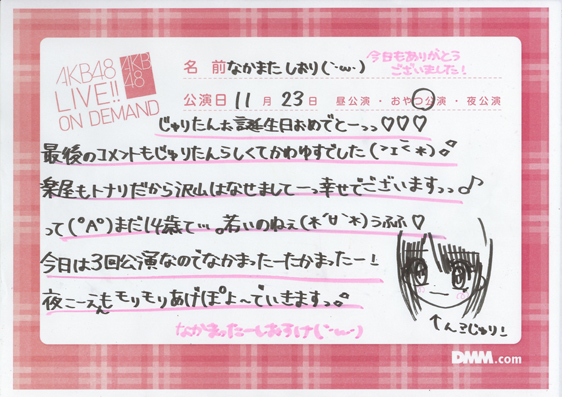 AKB48
LIVE!!
ON DEMAND
AKB
48
名 前 なかまた しおり(´･ω･)
今日もありがとう
ございました!
公演日 11 月 23 日 ・ 昼公演 ・ おやつ公演 ・ 夜公演
じゅりたんお誕生日おめでとーっっ♡♡♡
最後のコメントもじゅりたんらしくてかわゆすでした
楽屋もトナリだから沢山はなせましてーっ幸せでございますっっ♪
って(°Д°)まだ14歳て…。若いのねぇ(*´∀`*)うふふ♡
今日は3回公演なのでなかまったーたかまったー!
夜こーえんもモリモリあげぽよ〜でいきますっ。
↑んこじゅり!
なかまったーしおすけ(´･ω･)
DMM.com